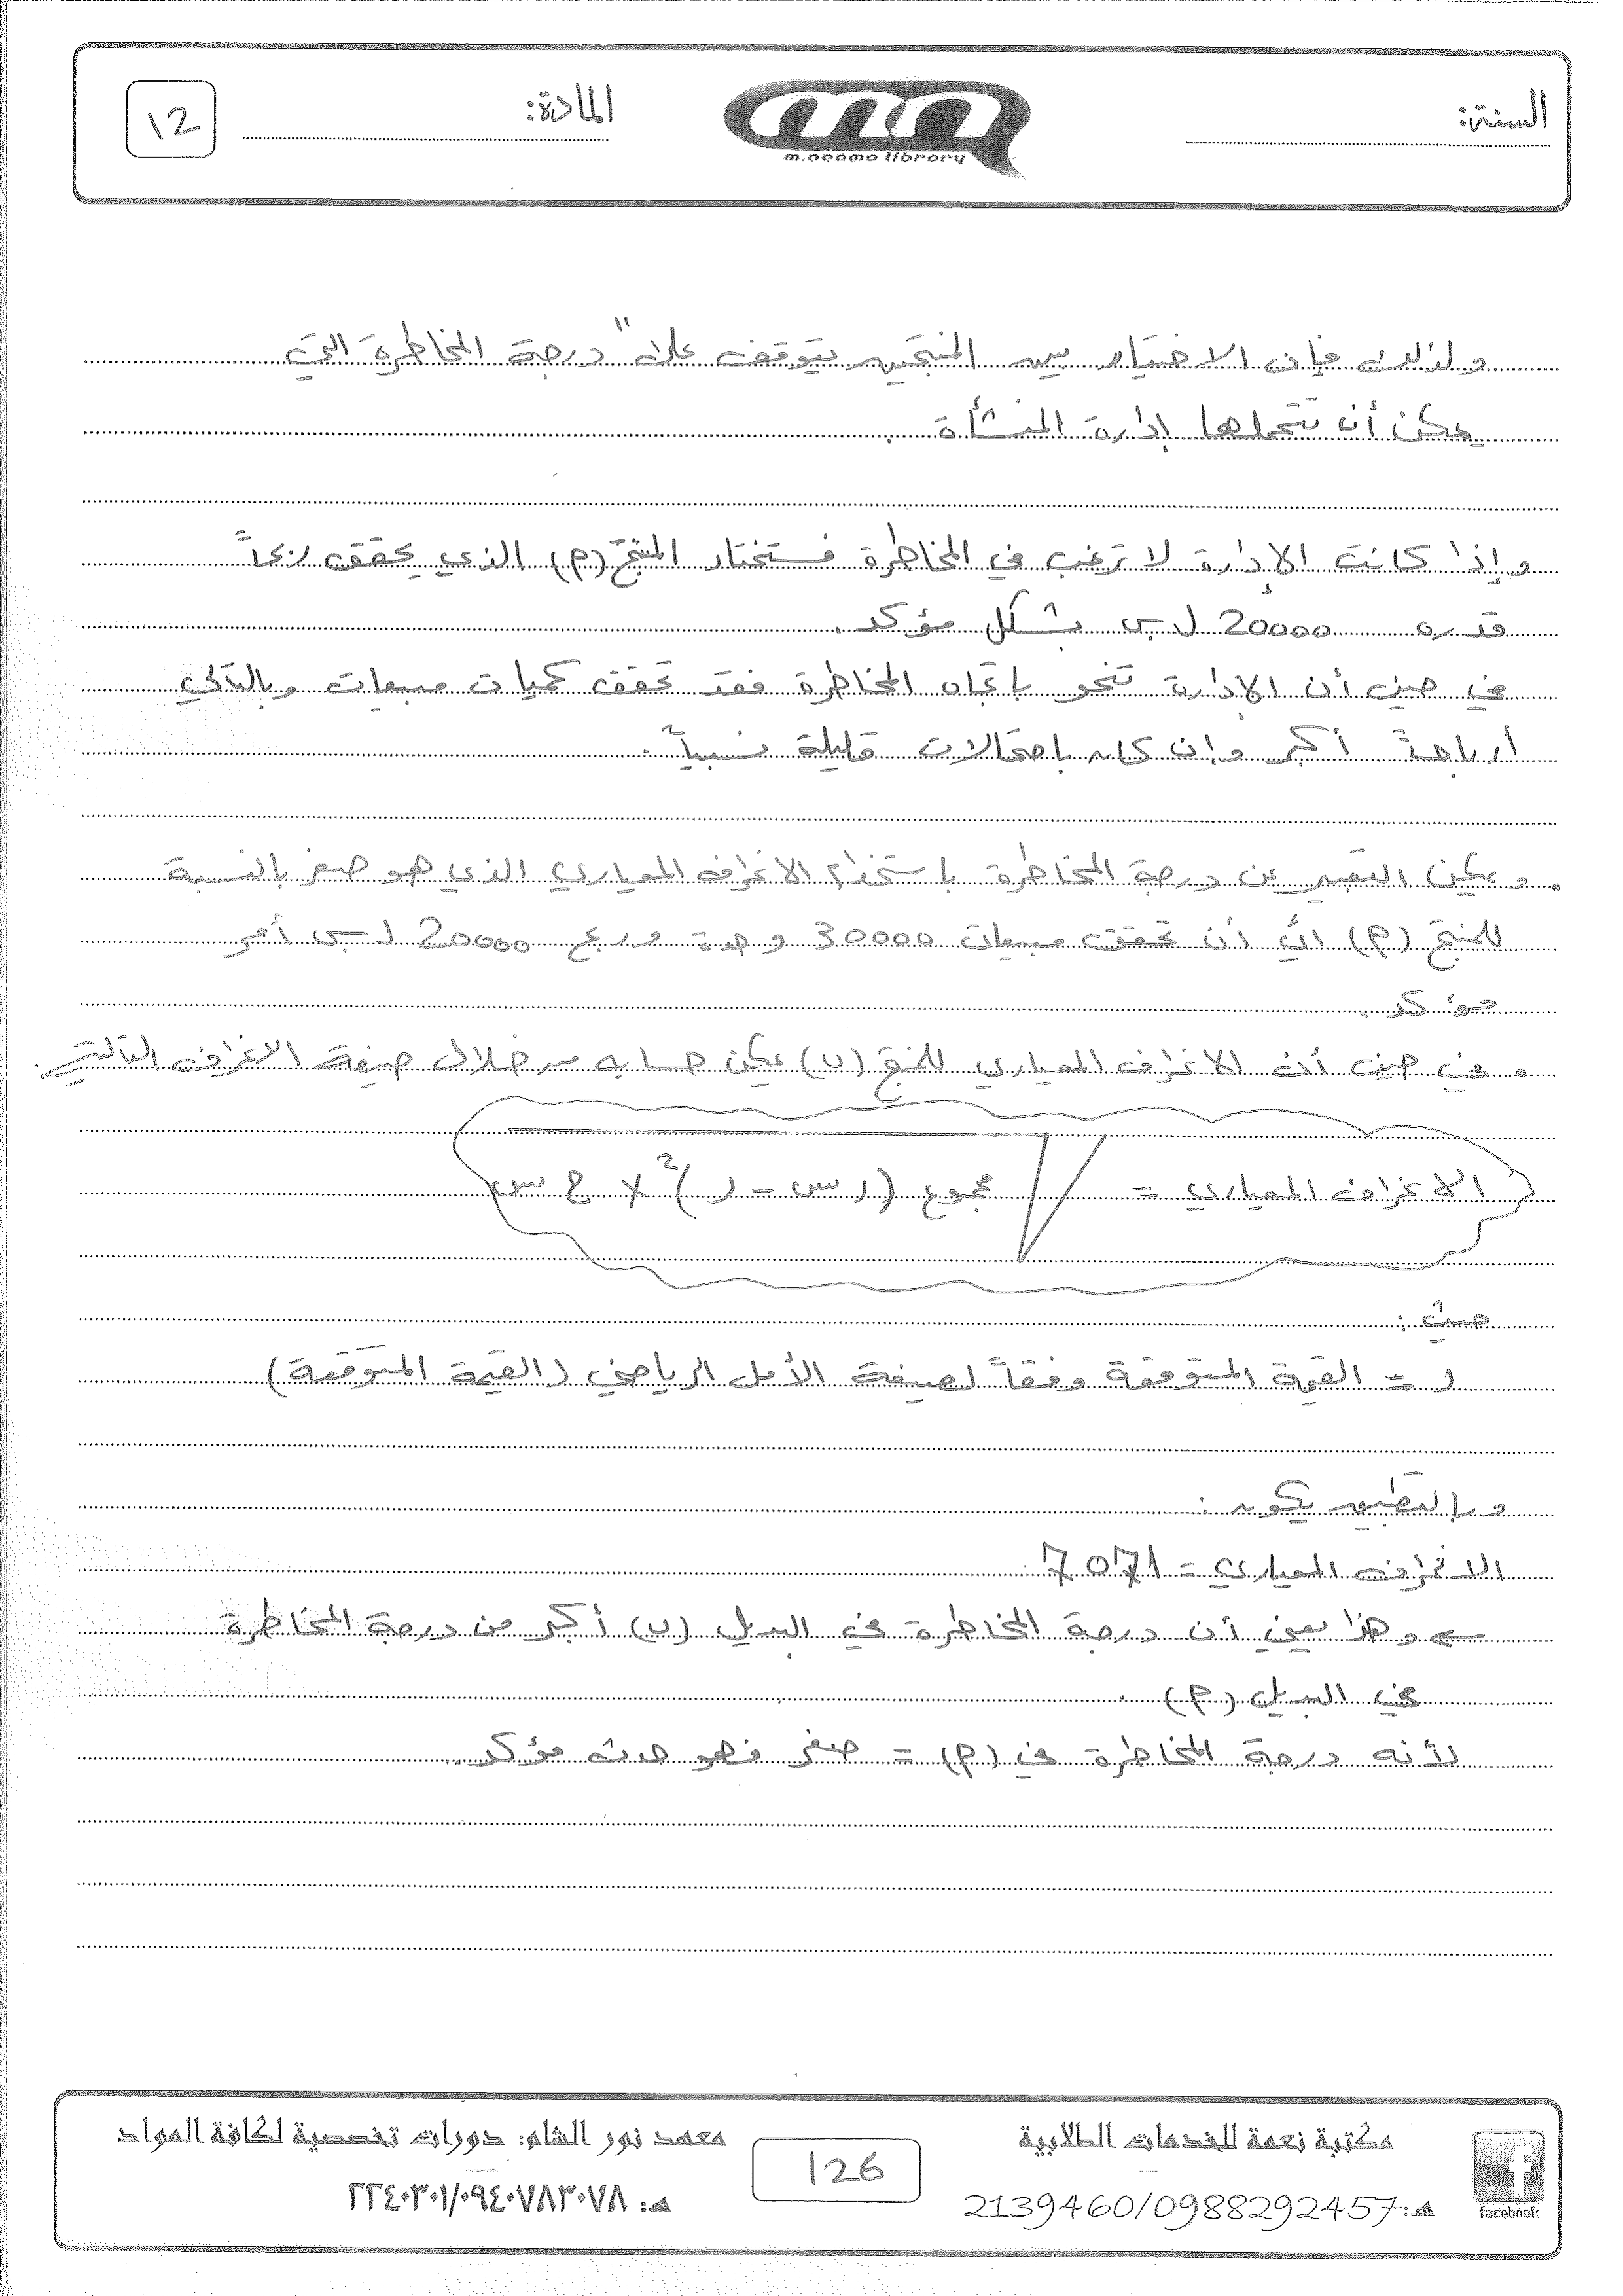 السنة:
m.neama library
المادة:
12
ولذلك فإن الاختيار بين المنتجين يتوقف على "درجة المخاطرة التي
يمكن أن تتحملها إدارة المنشأة.
وإذا كانت الإدارة لا ترغب في المخاطرة فستختار المنتج (م) الذي يحقق ربحاً
قدره 20000 ل.س بشكل مؤكد.
في حين أن الإدارة تنحو باتجاه المخاطرة فقد تحقق كميات مبيعات وبالتالي
أرباحاً أكبر وإن كان باحتمالات قليلة نسبياً.
• ويمكن التعبير عن درجة المخاطرة باستخدام الانحراف المعياري الذي هو صفر بالنسبة
للمنتج (م) أي أن تحقق مبيعات 30000 وحدة وربح 20000 ل.س أمر
مؤكد.
• في حين أن الانحراف المعياري للمنتج (ب) يمكن حسابه من خلال صيغة الانحراف التالية:
الانحراف المعياري = √ مجموع (ر س - ر)² × ح س
حيث:
ر = القيمة المتوقعة وفقاً لصيغة الأمل الرياضي (القيمة المتوقعة)
وبالتطبيق يكون:
الانحراف المعياري = 7071
← وهذا يعني أن درجة المخاطرة في البديل (ب) أكبر من درجة المخاطرة
في البديل (م).
لأنه درجة المخاطرة في (م) = صفر فهو حدث مؤكد..
facebook
مكتبة نعمة للخدمات الطلابية
هـ: 2139460/0988292457
126
معهد نور الشام: دورات تخصصية لكافة المواد
هـ: ٢٢٤٠٣٠١/٠٩٤٠٧٨٣٠٧٨